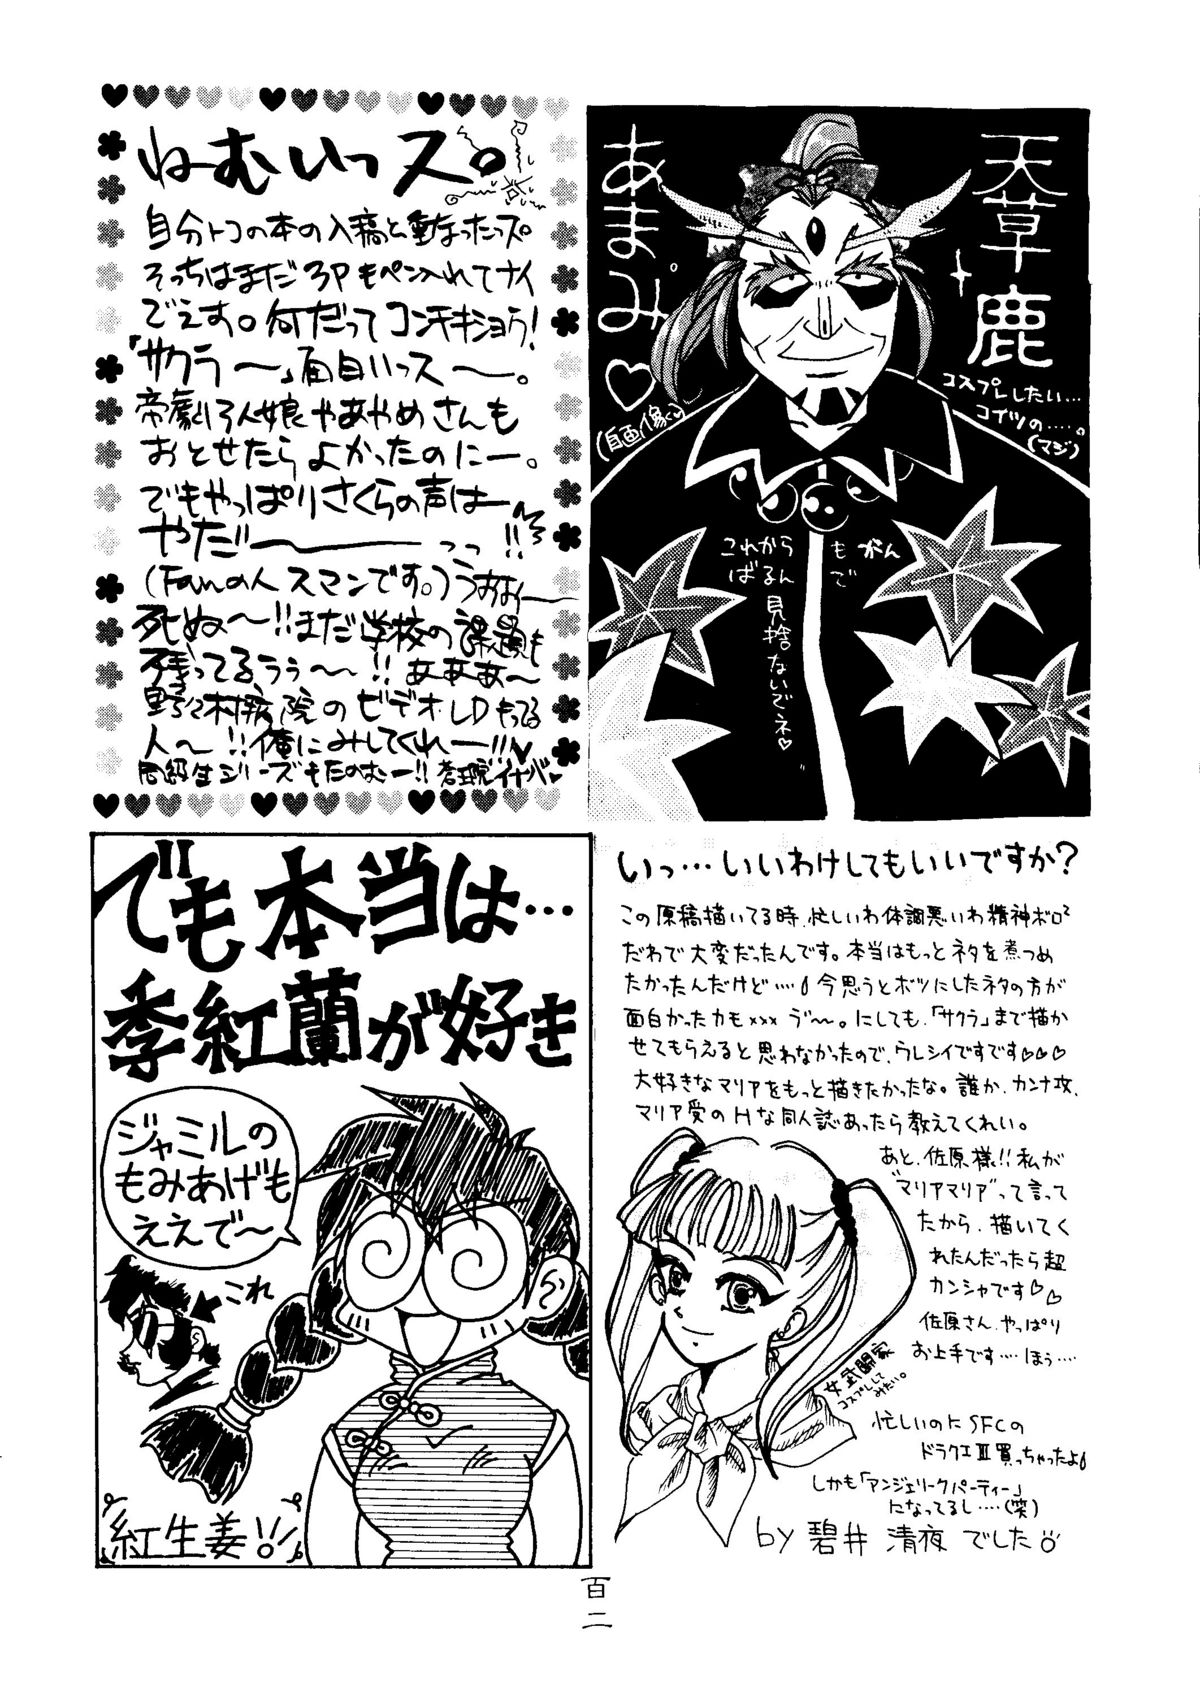 ねーむいっス。
自分トコの本の入稿と重なったっス。
そっちはまだ3Pもペン入れてナイ
でえす。何だってコンチキショウ!
「サクラ〜」面白いっス〜。
帝劇3人娘やあやめさんも
おとせたらよかったのにー。
でもやっぱりさくらの声は
やだ〜っっ!!
(Fanの人スマンです。)うおおお
死ぬ〜!!まだ学校の課題も
残ってるぅぅ〜!!あああ〜
野々村病院のビデオ、LDもってる
人〜!!俺にみしてくれー!!♥
同級生シリーズもたのむー!!蒼瑠院イナバ♥
天草鹿
あまみ♡
(自画像♡)
コスプレしたい…
コイツの…。
(マジ)
これからもがん
ばるんで
見捨ないでネ♡
でも本当は…
李紅蘭が好き
ジャミルの
もみあげも
ええで〜
これ
紅生姜!!
いっ…いいわけしてもいいですか?
この原稿描いてる時、忙しいわ体調悪いわ精神ボロ²
だわで大変だったんです。本当はもっとネタを煮つめ
たかったんだけど…今思うとボツにしたネタの方が
面白かったカモxxxゔ〜。にしても、「サクラ」まで描か
せてもらえると思わなかったので、ウレシイですです♡♡♡
大好きなマリアをもっと描きたかったな。誰か、カンナ攻、
マリア受のHな同人誌あったら教えてくれい。
あと、佐原様!!私が
"マリアマリア"って言って
たから、描いてく
れたんだったら超
カンシャです♡♡
佐原さん、やっぱり
お上手です…ほぅ…
女武闘家
コスプレして
みたい。
忙しいのにSFCの
ドラクエⅢ買っちゃったよ
しかも「アンジェリークパーティー」
になってるし…(笑)
by 碧井 清夜 でした
百二